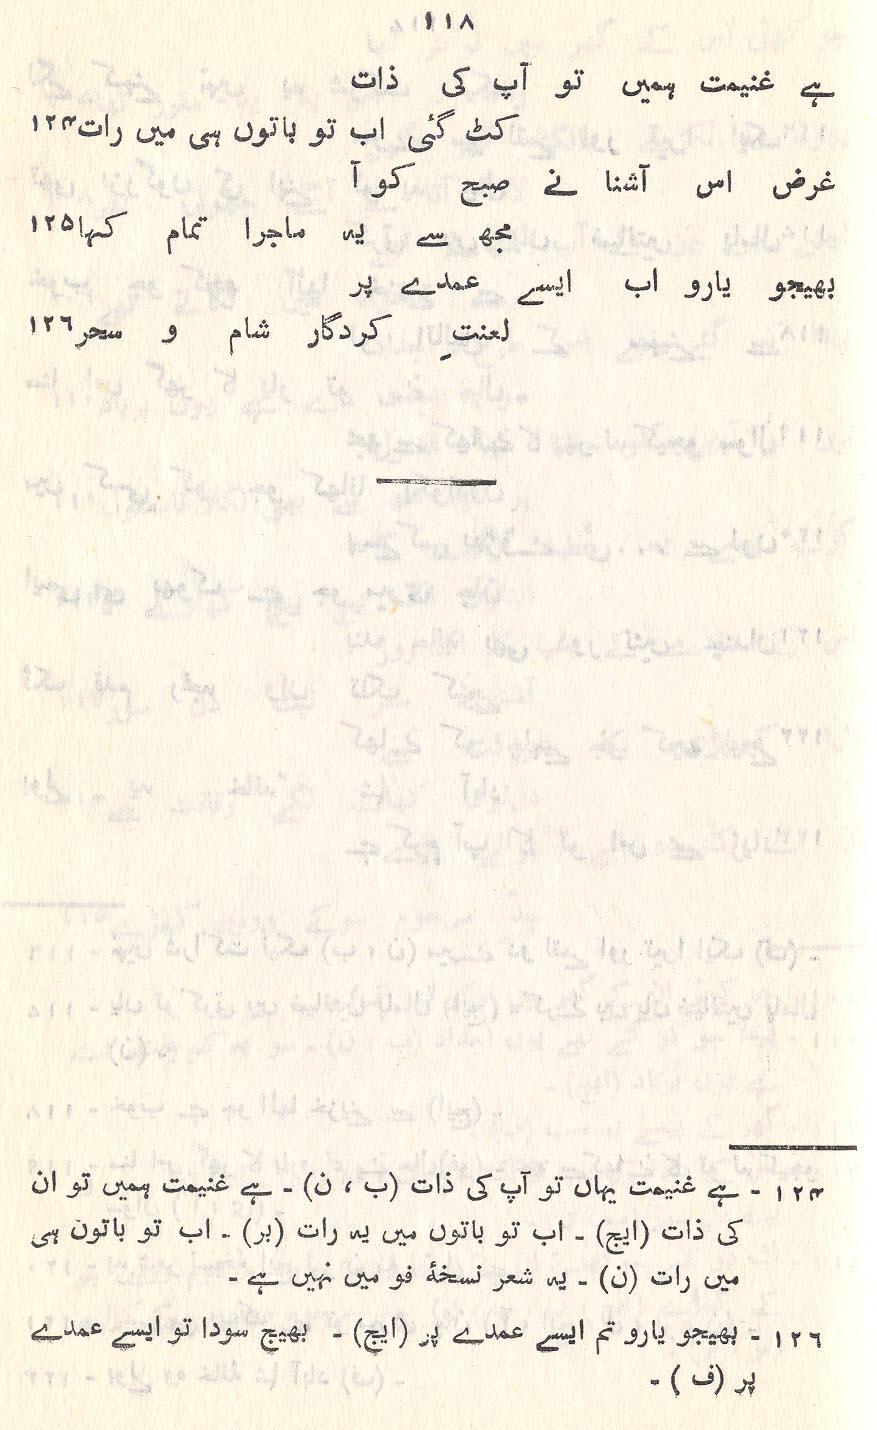 ۱۱۸
ہے غنیمت ہمیں تو آپ کی ذات
کٹ گئی اب تو باتوں ہی میں رات ۱۲۴
غرض اس آشنا نے صبح کو آ
مجھ سے یہ ماجرا تمام کہا ۱۲۵
بھیجو یارو اب ایسے عمدے پر
لعنتِ کردگار شام و سحر ۱۲٦
۱۲۴ - ہے غنیمت یہاں تو آپ کی ذات (ب ، ن) ۔ ہے غنیمت ہمیں تو ان
کی ذات (ایچ) ۔ اب تو باتوں میں یہ رات (بر) ۔ اب تو باتون ہی
میں رات (ن) ۔ یہ شعر نسخۂ فو میں نہیں ہے ۔
۱۲٦ - بھیجو یارو تم ایسے عمدے پر (ایچ) ۔ بھیج سودا تو ایسے عمدے
پر (ف) ۔